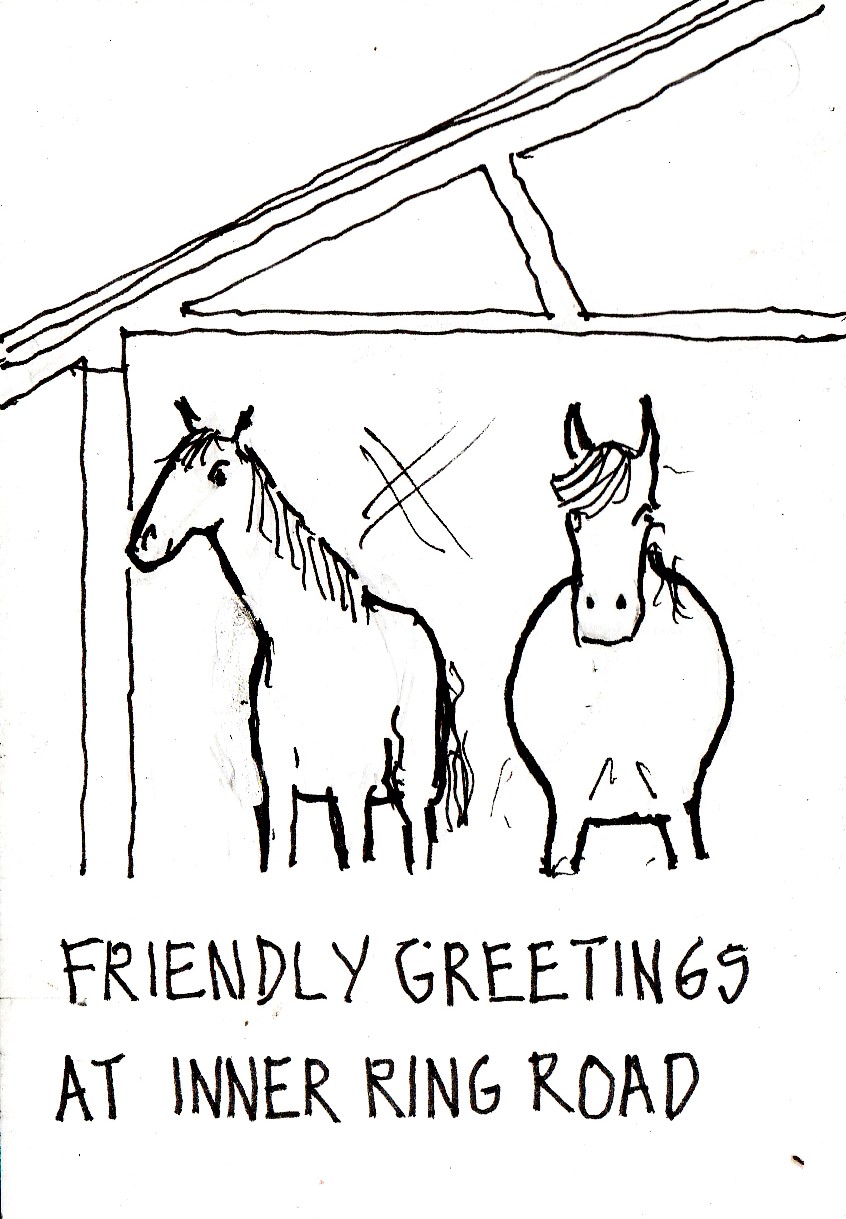 FRIENDLY GREETINGS
AT INNER RING ROAD